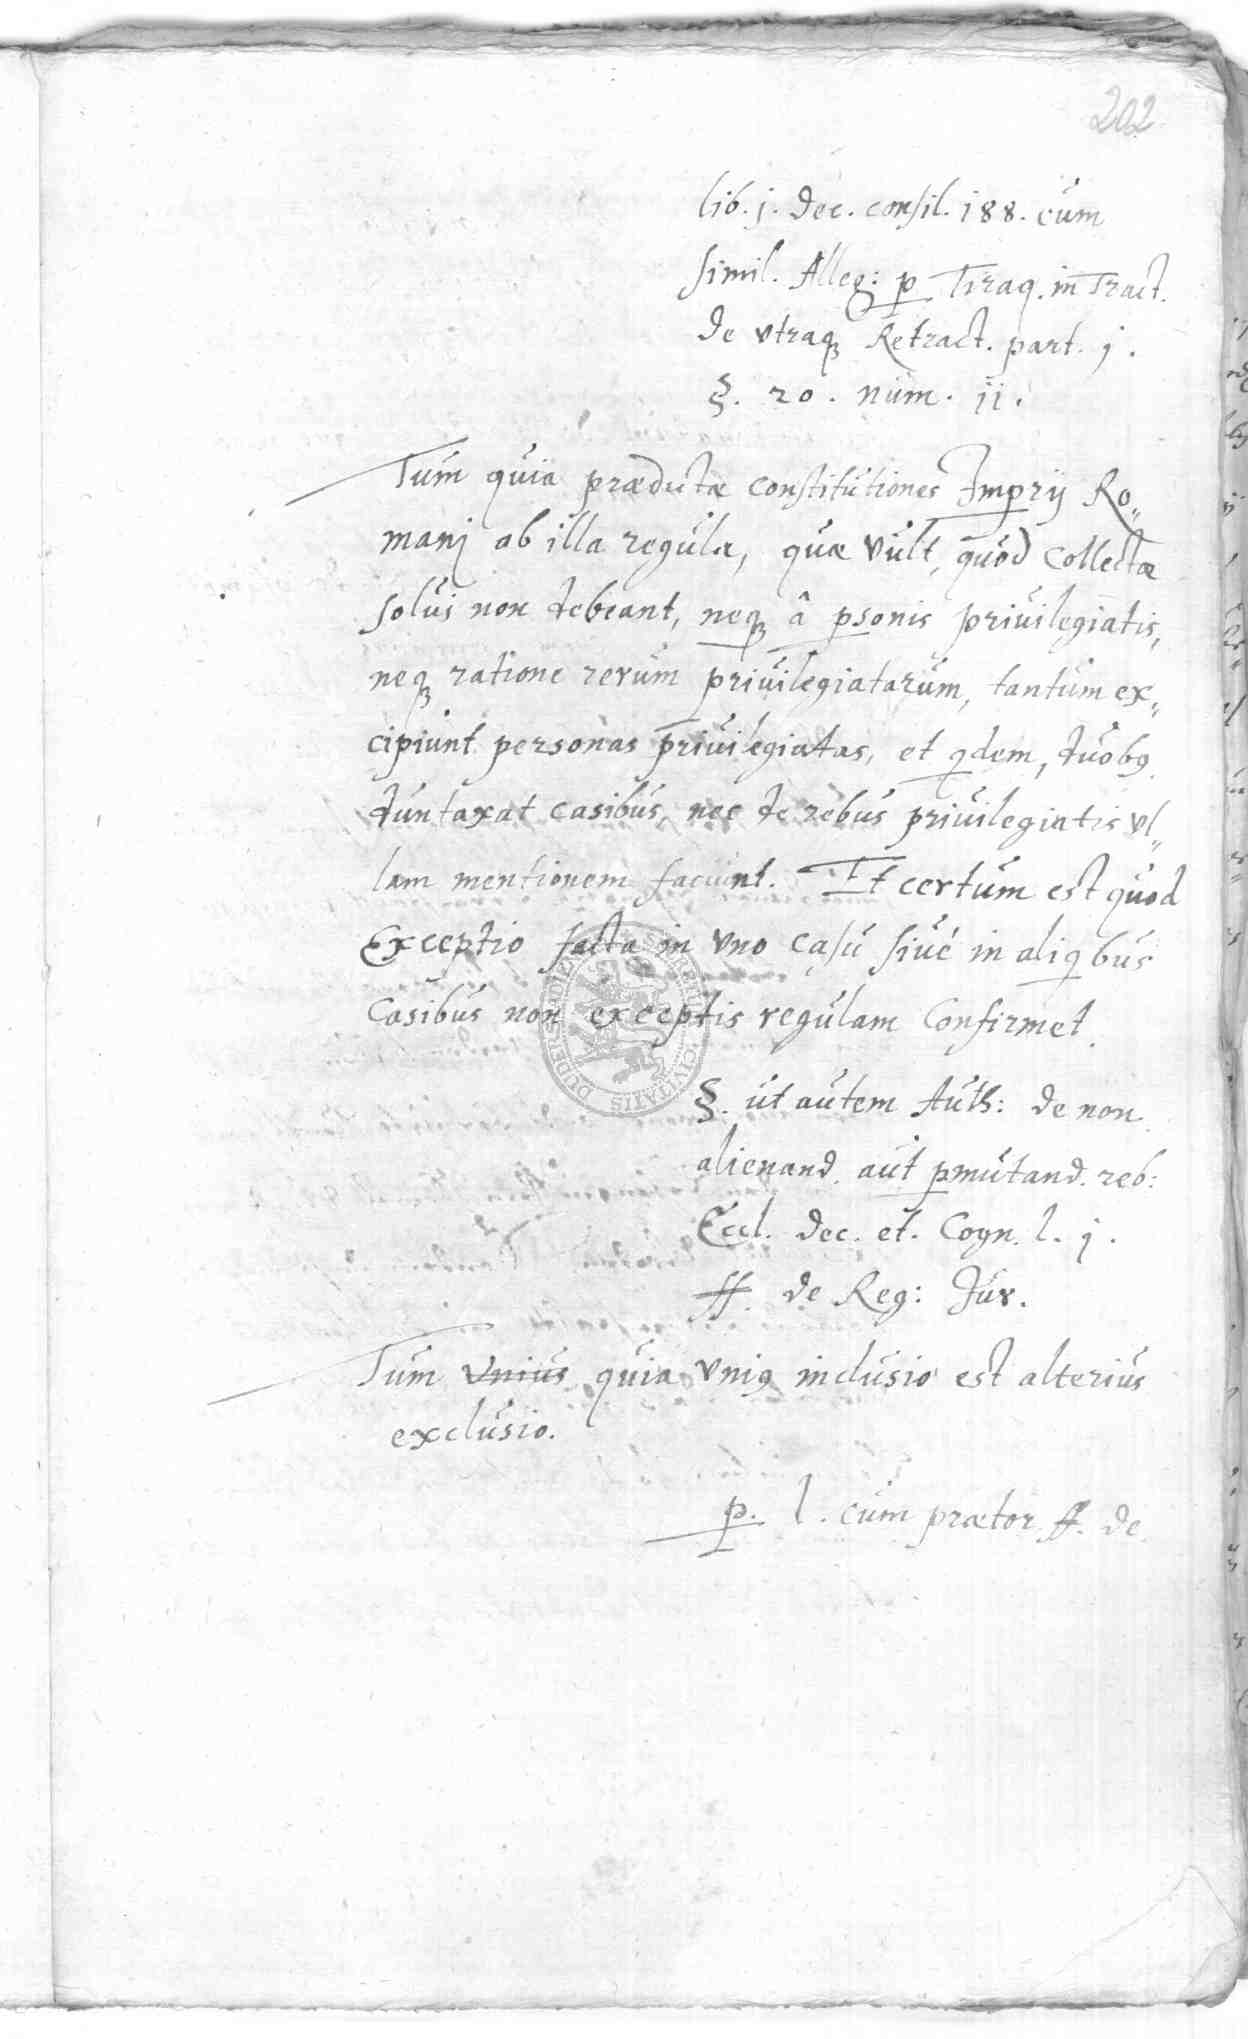 202
lib. j. Dec. consil. 188. cum
simil. Alleg: p Tiraq. in Tract.
de vtraq Retract. part. j.
§. 20. num. ii.
Tum quia prædictæ constitutiones Imprij Ro„
manj ab illa regula, quæ vult, quod Collectæ
solui non debeant, neq â psonis priuilegiatis,
neq ratione rerum priuilegiatarum, tantum ex„
cipiunt personas priuilegiatas, et qdem, duob9
duntaxat casibus, nec de rebus priuilegiatis vl„
lam mentionem faciunt. Et certum est quod
Exceptio facta in vno casu siue in aliqbus
Casibus non exceptis regulam Confirmet.
CIVITATIS DUDERSTADIENSIS
§. ut autem Auth: de non
alienand. aut pmutand. reb:
Eccl. Dec. et. Cogn. l. j.
ff. de Reg: Jur.
Tum Vnius quia vni9 inclusio est alterius
exclusio.
p. l. cum prætor ff. de